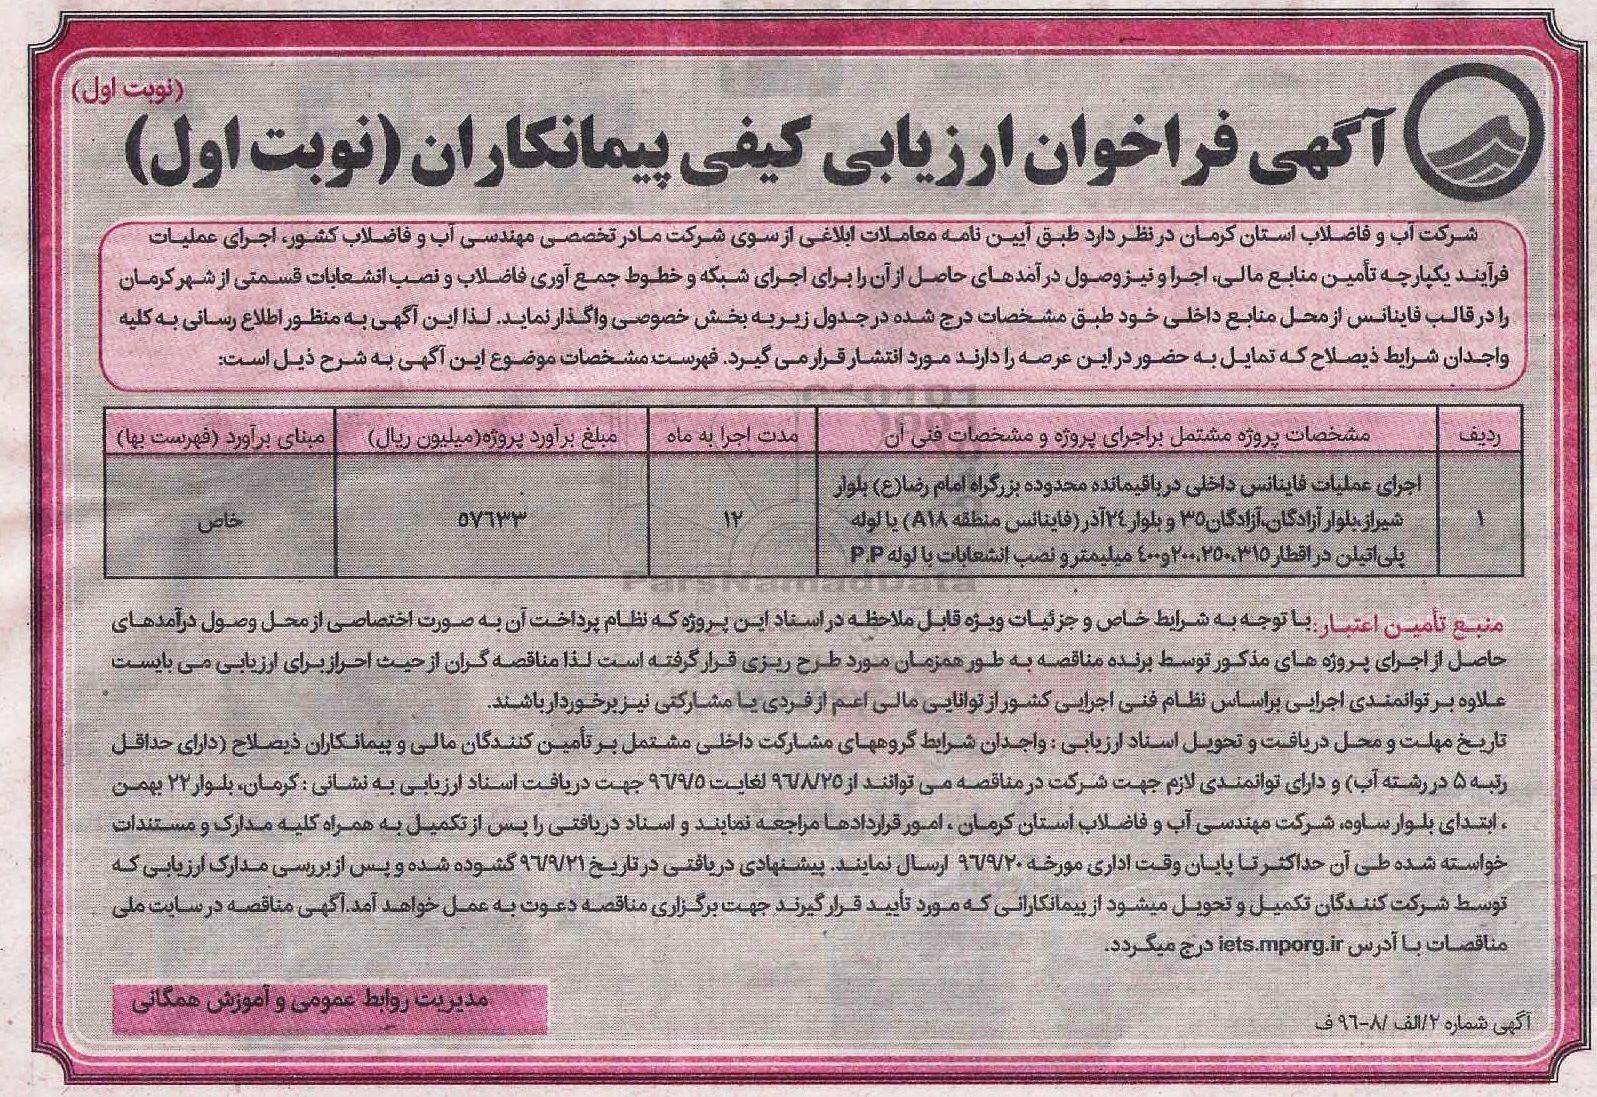 (نوبت اول)
آگهی فراخوان ارزیابی کیفی پیمانکاران (نوبت اول)
شرکت آب و فاضلاب استان کرمان در نظر دارد طبق آیین نامه معاملات ابلاغی از سوی شرکت مادر تخصصی مهندسی آب و فاضلاب کشور، اجرای عملیات
فرآیند یکپارچه تأمین منابع مالی، اجرا و نیز وصول درآمدهای حاصل از آن را برای اجرای شبکه و خطوط جمع آوری فاضلاب و نصب انشعابات قسمتی از شهر کرمان
را در قالب فاینانس از محل منابع داخلی خود طبق مشخصات درج شده در جدول زیر به بخش خصوصی واگذار نماید. لذا این آگهی به منظور اطلاع رسانی به کلیه
واجدان شرایط ذیصلاح که تمایل به حضور در این عرصه را دارند مورد انتشار قرار می گیرد. فهرست مشخصات موضوع این آگهی به شرح ذیل است:
ردیف	مشخصات پروژه مشتمل بر اجرای پروژه و مشخصات فنی آن	مدت اجرا به ماه	مبلغ برآورد پروژه(میلیون ریال)	مبنای برآورد (فهرست بها)
اجرای عملیات فاینانس داخلی در باقیمانده محدوده بزرگراه امام رضا(ع) بلوار
۱	شیراز،بلوار آزادگان،آزادگان۳۵ و بلوار ۲۴آذر (فاینانس منطقه A۱۸) با لوله	۱۲	۵۷۶۳۳	خاص
پلی‌اتیلن در اقطار ۲۰۰،۲۵۰،۳۱۵و۴۰۰ میلیمتر و نصب انشعابات با لوله P.P
ParsNamadData
منبع تأمین اعتبار: با توجه به شرایط خاص و جزئیات ویژه قابل ملاحظه در اسناد این پروژه که نظام پرداخت آن به صورت اختصاصی از محل وصول درآمدهای
حاصل از اجرای پروژه های مذکور توسط برنده مناقصه به طور همزمان مورد طرح ریزی قرار گرفته است لذا مناقصه گران از حیث احراز برای ارزیابی می بایست
علاوه بر توانمندی اجرایی براساس نظام فنی اجرایی کشور از توانایی مالی اعم از فردی یا مشارکتی نیز برخوردار باشند.
تاریخ مهلت و محل دریافت و تحویل اسناد ارزیابی : واجدان شرایط گروههای مشارکت داخلی مشتمل بر تأمین کنندگان مالی و پیمانکاران ذیصلاح (دارای حداقل
رتبه ۵ در رشته آب) و دارای توانمندی لازم جهت شرکت در مناقصه می توانند از ۹۶/۸/۲۵ لغایت ۹۶/۹/۵ جهت دریافت اسناد ارزیابی به نشانی : کرمان، بلوار ۲۲ بهمن
، ابتدای بلوار ساوه، شرکت مهندسی آب و فاضلاب استان کرمان ، امور قراردادها مراجعه نمایند و اسناد دریافتی را پس از تکمیل به همراه کلیه مدارک و مستندات
خواسته شده طی آن حداکثر تا پایان وقت اداری مورخه ۹۶/۹/۲۰ ارسال نمایند. پیشنهادی دریافتی در تاریخ ۹۶/۹/۲۱ گشوده شده و پس از بررسی مدارک ارزیابی که
توسط شرکت کنندگان تکمیل و تحویل میشود از پیمانکارانی که مورد تأیید قرار گیرند جهت برگزاری مناقصه دعوت به عمل خواهد آمد.آگهی مناقصه در سایت ملی
مناقصات با آدرس iets.mporg.ir درج میگردد.
مدیریت روابط عمومی و آموزش همگانی
آگهی شماره ۲/الف /۸-۹۶ ف